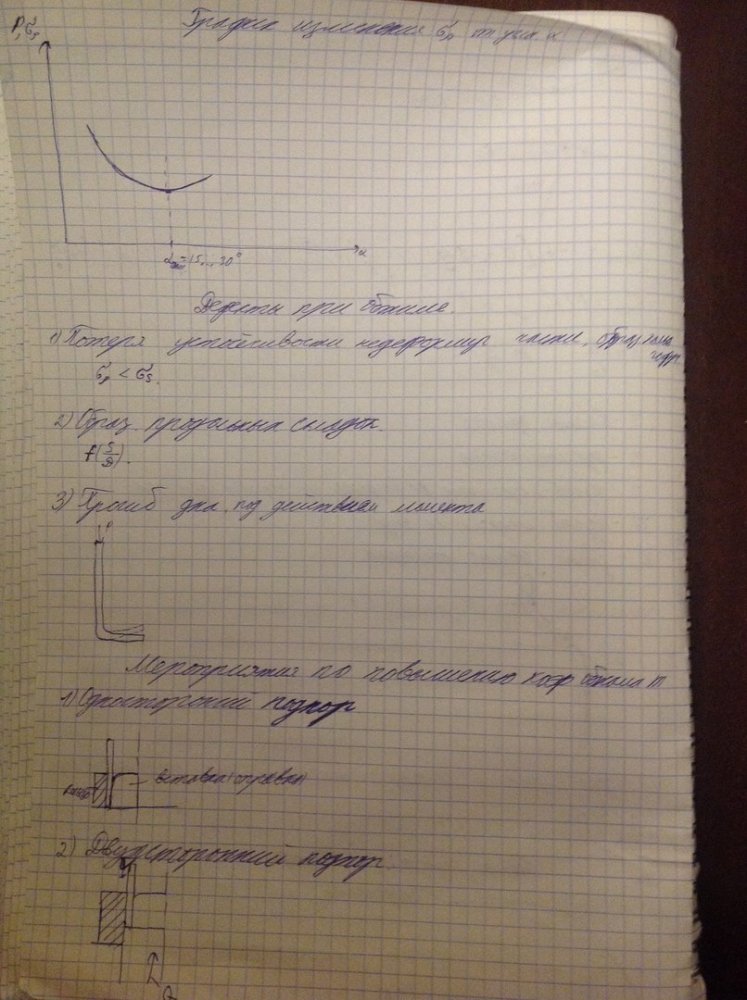 График изменения σр от угла α
P, σs
α
αопт=15...30°
Дефекты при обжиме.
1) Потеря устойчивости недеформир части, образ.
σр < σs.
2) Образ. продольных складок.
f(S/D).
3) Прогиб дна под действием момента
P
Мероприятия по повышению коэф обжима m
1) Односторонний подпор
вставка (оправка)
2) Двухсторонний подпор
Q